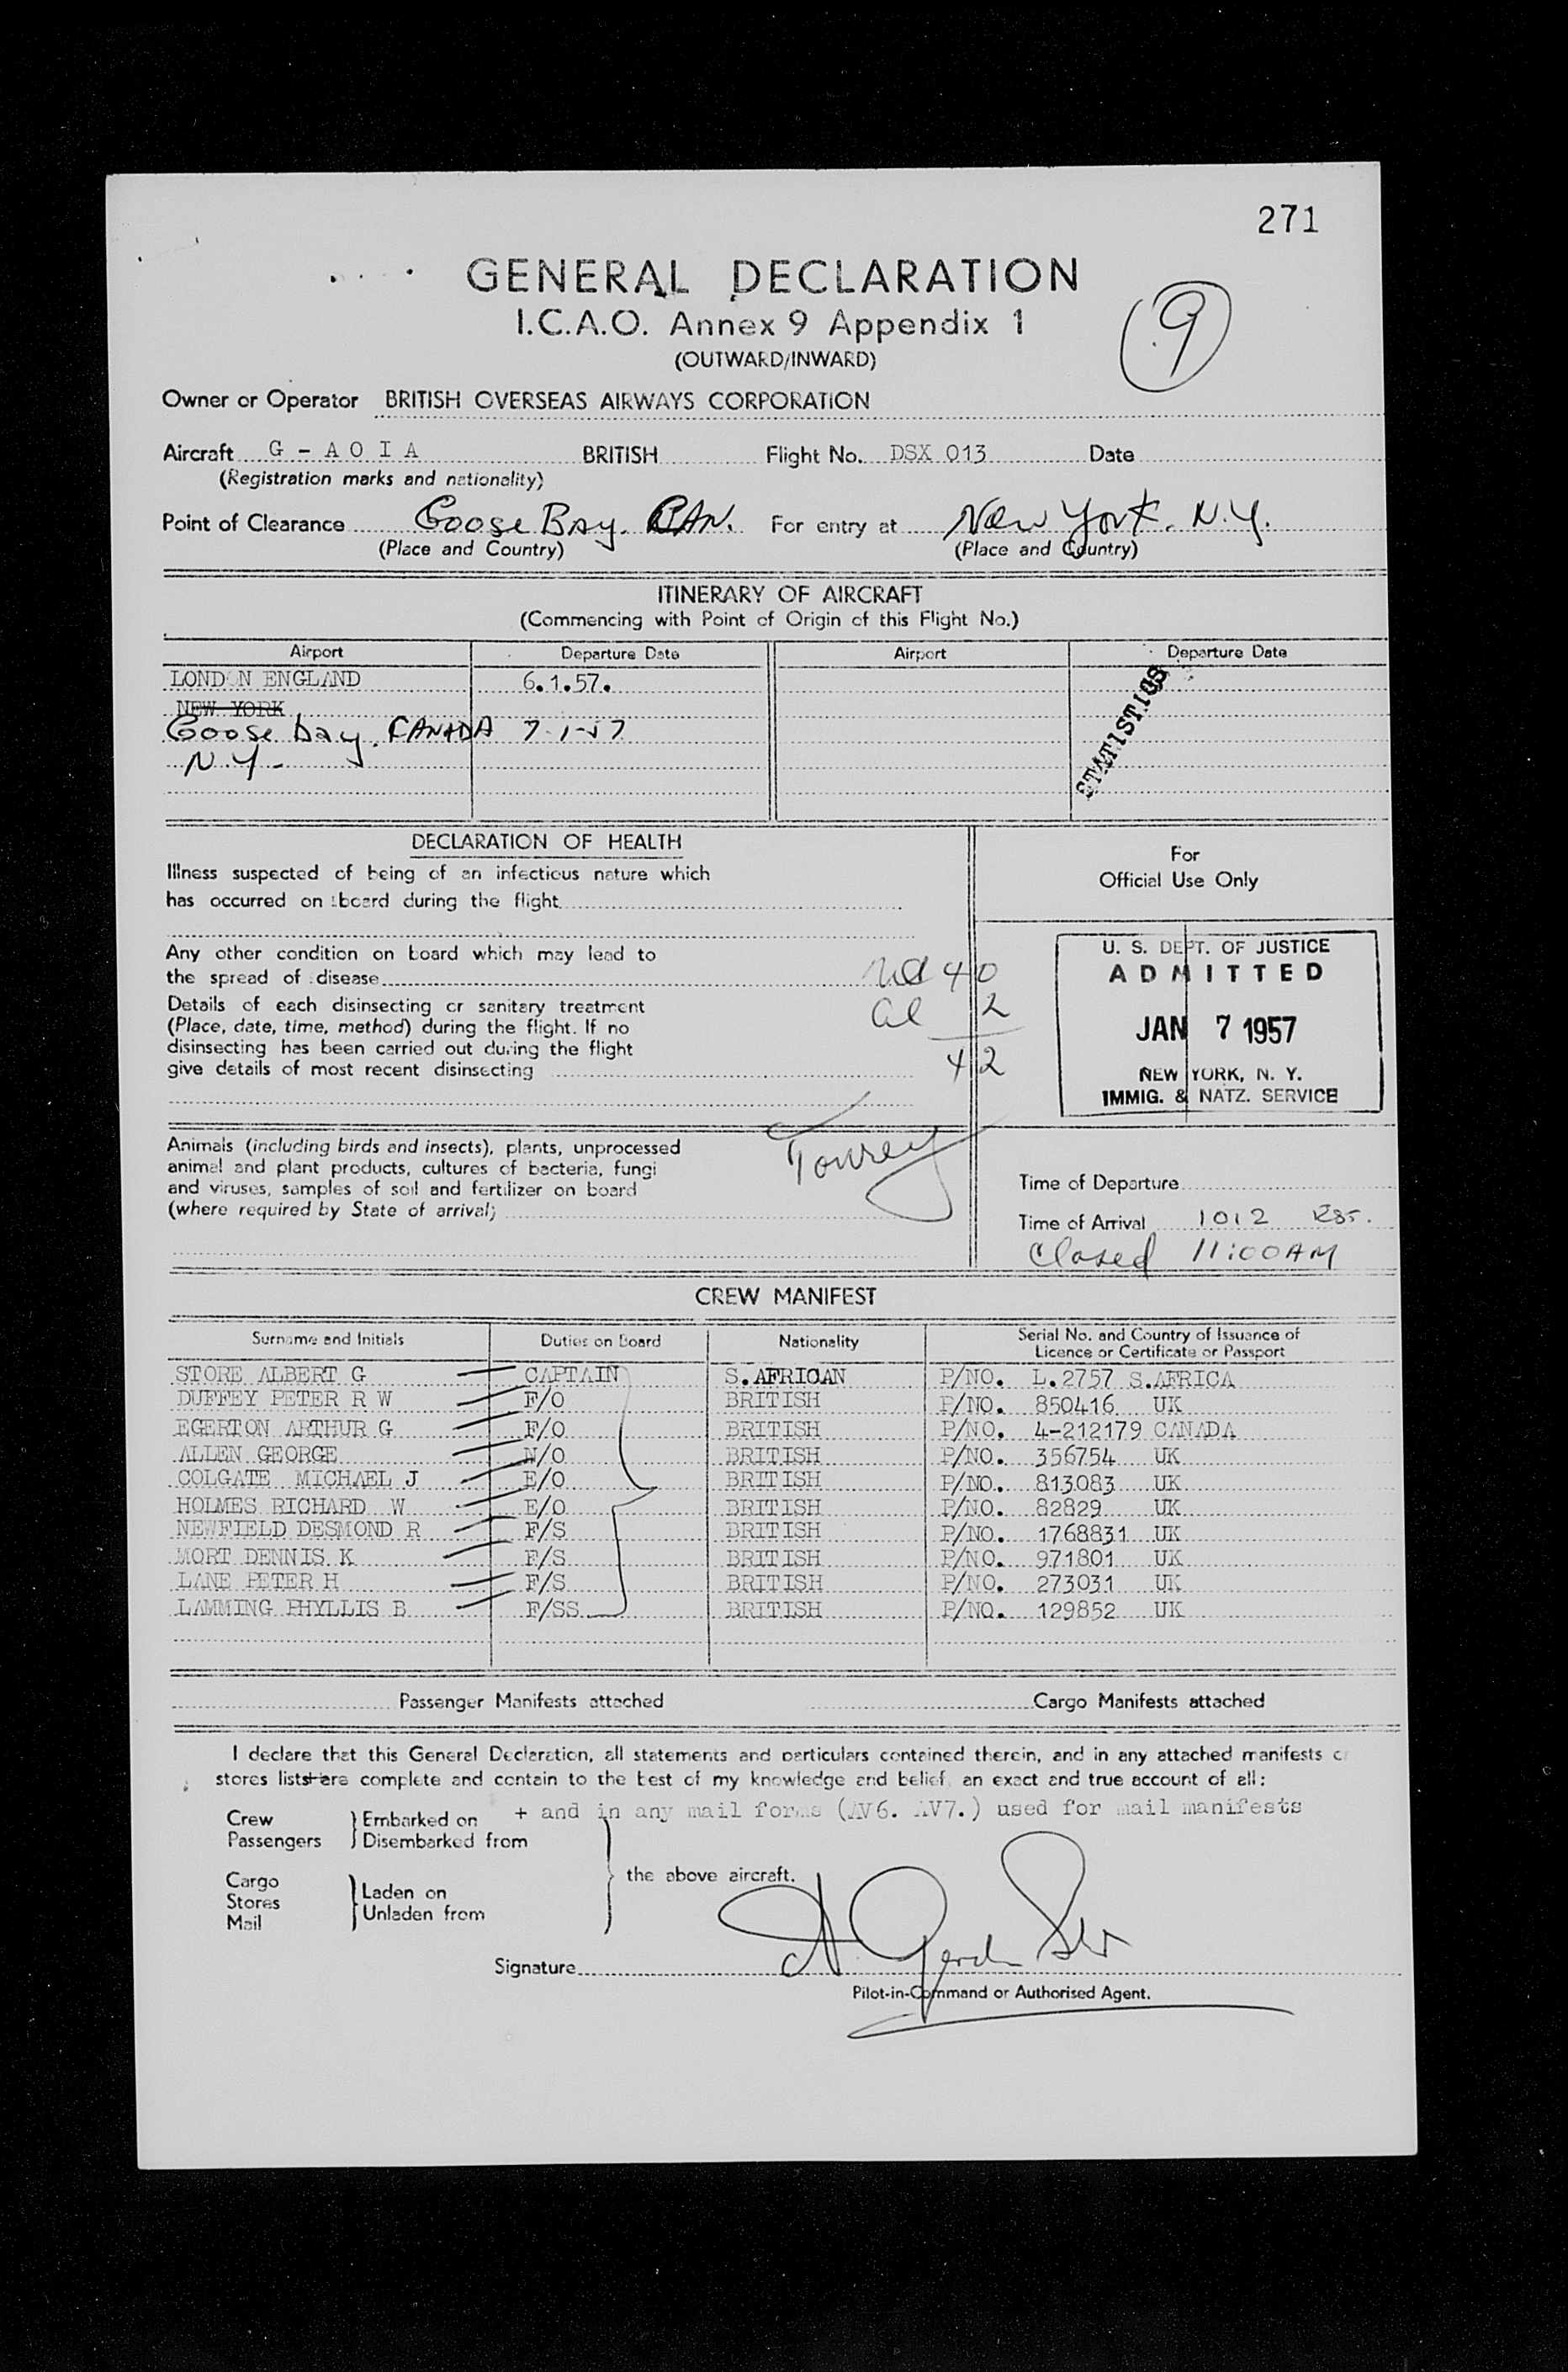 271
GENERAL DECLARATION
I.C.A.O. Annex 9 Appendix 1
(OUTWARD/INWARD)
9
Owner or Operator BRITISH OVERSEAS AIRWAYS CORPORATION
Aircraft G - A O I A BRITISH Flight No. DSX 013 Date
(Registration marks and nationality)
Point of Clearance Goose Bay. CAN. For entry at New York. N.Y.
(Place and Country) (Place and Country)
ITINERARY OF AIRCRAFT
(Commencing with Point of Origin of this Flight No.)
Airport Departure Date Airport Departure Date
LONDON ENGLAND 6.1.57.
NEW YORK
Goose bay, CANADA 7-1-57
N.Y-
STATISTICS
DECLARATION OF HEALTH
Illness suspected of being of an infectious nature which
has occurred on board during the flight
Any other condition on board which may lead to
the spread of disease
Details of each disinsecting or sanitary treatment
(Place, date, time, method) during the flight. If no
disinsecting has been carried out during the flight
give details of most recent disinsecting
40
2
42
For
Official Use Only
U. S. DEPT. OF JUSTICE
ADMITTED
JAN 7 1957
NEW YORK, N. Y.
IMMIG. & NATZ. SERVICE
Animals (including birds and insects), plants, unprocessed
animal and plant products, cultures of bacteria, fungi
and viruses, samples of soil and fertilizer on board
(where required by State of arrival)
Time of Departure
Time of Arrival 1012
Closed 11:00AM
CREW MANIFEST
Surname and Initials Duties on Board Nationality Serial No. and Country of Issuance of Licence or Certificate or Passport
STORE ALBERT G CAPTAIN S.AFRICAN P/NO. L.2757 S.AFRICA
DUFFEY PETER R W F/O BRITISH P/NO. 850416 UK
EGERTON ARTHUR G F/O BRITISH P/NO. 4-212179 CANADA
ALLEN GEORGE N/O BRITISH P/NO. 356754 UK
COLGATE MICHAEL J E/O BRITISH P/NO. 813083 UK
HOLMES RICHARD W E/O BRITISH P/NO. 82829 UK
NEWFIELD DESMOND R F/S BRITISH P/NO. 1768831 UK
MORT DENNIS K F/S BRITISH P/NO. 971801 UK
LANE PETER H F/S BRITISH P/NO. 273031 UK
LAMMING PHYLLIS B F/SS BRITISH P/NO. 129852 UK
Passenger Manifests attached Cargo Manifests attached
I declare that this General Declaration, all statements and particulars contained therein, and in any attached manifests
stores lists+are complete and contain to the best of my knowledge and belief, an exact and true account of all:
+ and in any mail forms (AV6. AV7.) used for mail manifests
Crew Embarked on
Passengers Disembarked from
the above aircraft.
Cargo
Stores Laden on
Mail Unladen from
Signature
Pilot-in-Command or Authorised Agent.